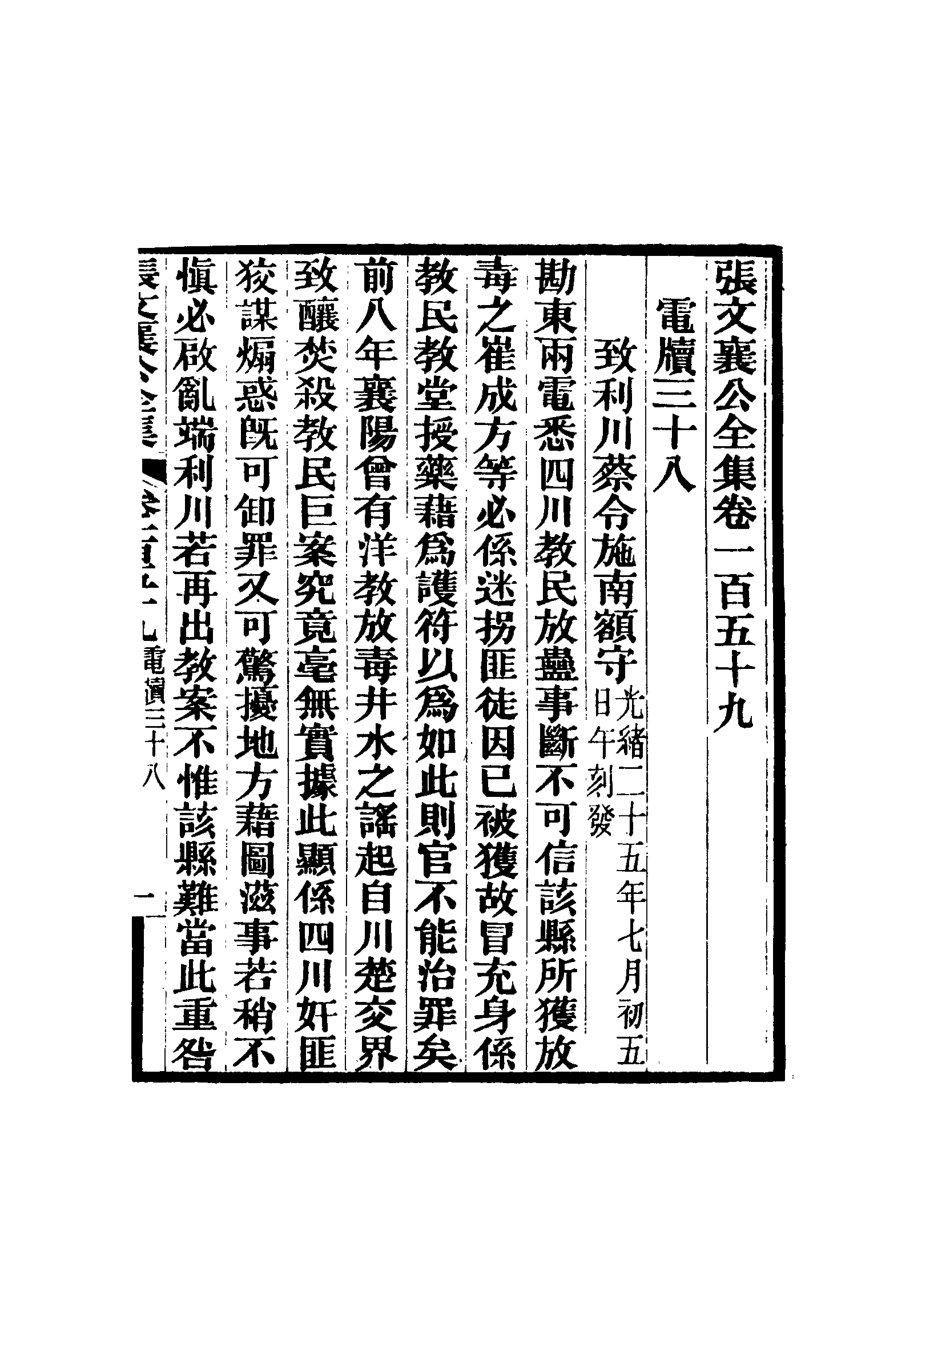 張文襄公全集卷一百五十九
電牘三十八
致利川蔡令施南額守光緒二十五年七月初五日午刻發
勘東兩電悉四川教民放蠱事斷不可信該縣所獲放
毒之崔成方等必係迷拐匪徒因已被獲故冒充身係
教民教堂授藥藉爲護符以爲如此則官不能治罪矣
前八年襄陽曾有洋教放毒井水之謠起自川楚交界
致釀焚殺教民巨案究竟毫無實據此顯係四川奸匪
狡謀煽惑既可卸罪又可驚擾地方藉圖滋事若稍不
慎必啟亂端利川若再出教案不惟該縣難當此重咎
張文襄公全集 卷一百五十九 電牘三十八 一